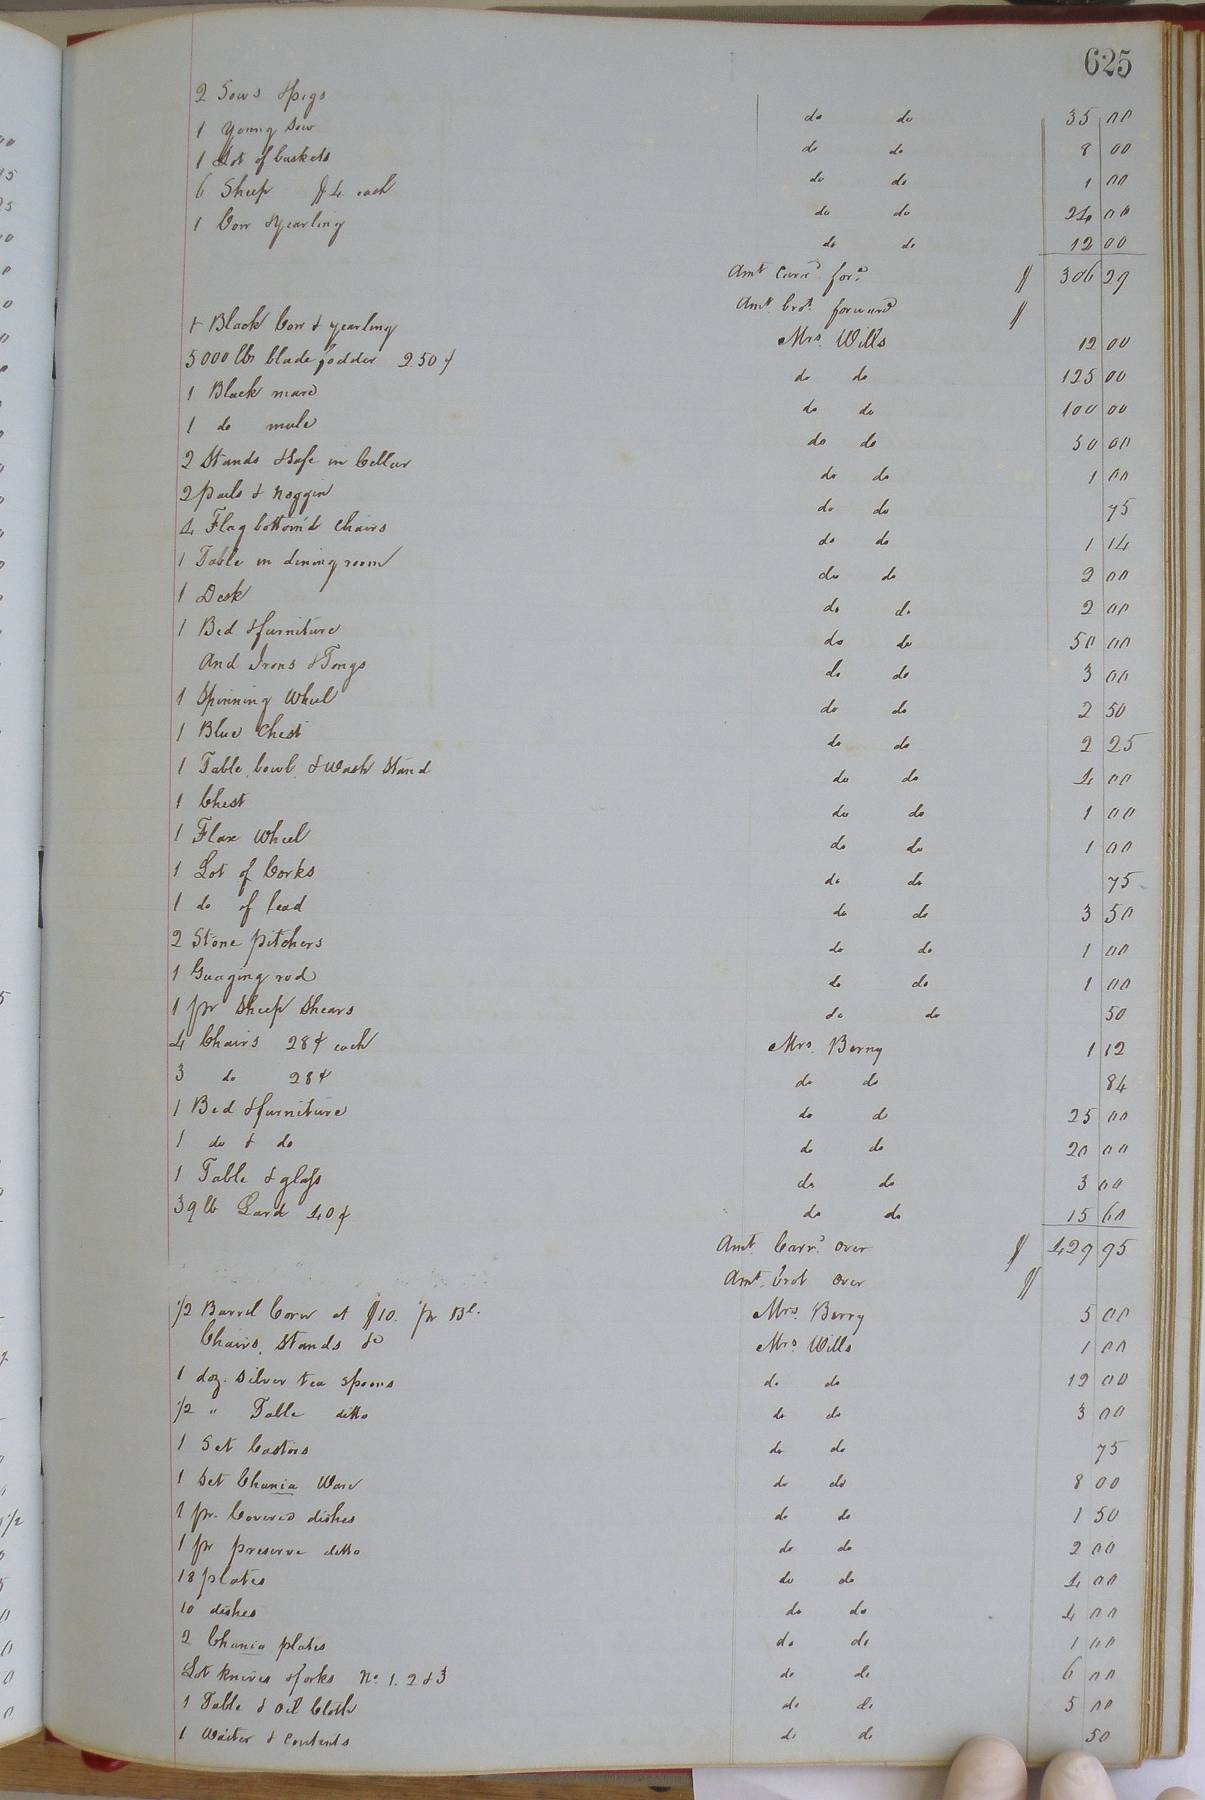 625
2 Sows & pigs do do 35 00
1 Young Sow do do 8 00
1 Lot of baskets do do 1 00
6 Sheep $4 each do do 24 00
1 Cow & yearling do do 12 00
Amt Carrd ford $ 306 29
Amt brot forward $
1 Black Cow & yearling Mrs. Wills 12 00
5000 lbs blade fodder 2.50 ¢ do do 125 00
1 Black mare do do 100 00
1 do mule do do 50 00
2 Stands & Safe in Cellar do do 1 00
2 pails & noggin do do 75
4 Flag bottom'd Chairs do do 1 14
1 Table in dining room do do 2 00
1 Desk do do 2 00
1 Bed & furniture do do 50 00
And Irons & Tongs do do 3 00
1 Spinning Wheel do do 2 50
1 Blue Chest do do 2 25
1 Table, bowl, & Wash Stand do do 4 00
1 Chest do do 1 00
1 Flax Wheel do do 1 00
1 Lot of Corks do do 75
1 do of lead do do 3 50
2 Stone pitchers do do 1 00
1 Guaging rod do do 1 00
1 pr Sheep Shears do do 50
4 Chairs 28¢ each Mrs. Berry 1 12
3 do 28¢ do do 84
1 Bed & furniture do do 25 00
1 do & do do do 20 00
1 Table & glass do do 3 00
39 lb Lard 40¢ do do 15 60
Amt Carrd over $ 429 95
Amt. brot over $
1/2 Barrel Corn at $10. pr Bl. Mrs. Berry 5 00
Chairs, Stands &c Mrs. Wills 1 00
1 doz. Silver tea spoons do do 12 00
1/2 " Table ditto do do 3 00
1 Set Castors do do 75
1 Set Chania Ware do do 8 00
1 pr. Covered dishes do do 1 50
1 pr preserve ditto do do 2 00
18 plates do do 4 00
10 dishes do do 4 00
2 Chania plates do do 1 00
Lot Knives & forks No. 1. 2 & 3 do do 6 00
1 Table & Oil Cloth do do 5 00
1 Waiter & Contents do do 50